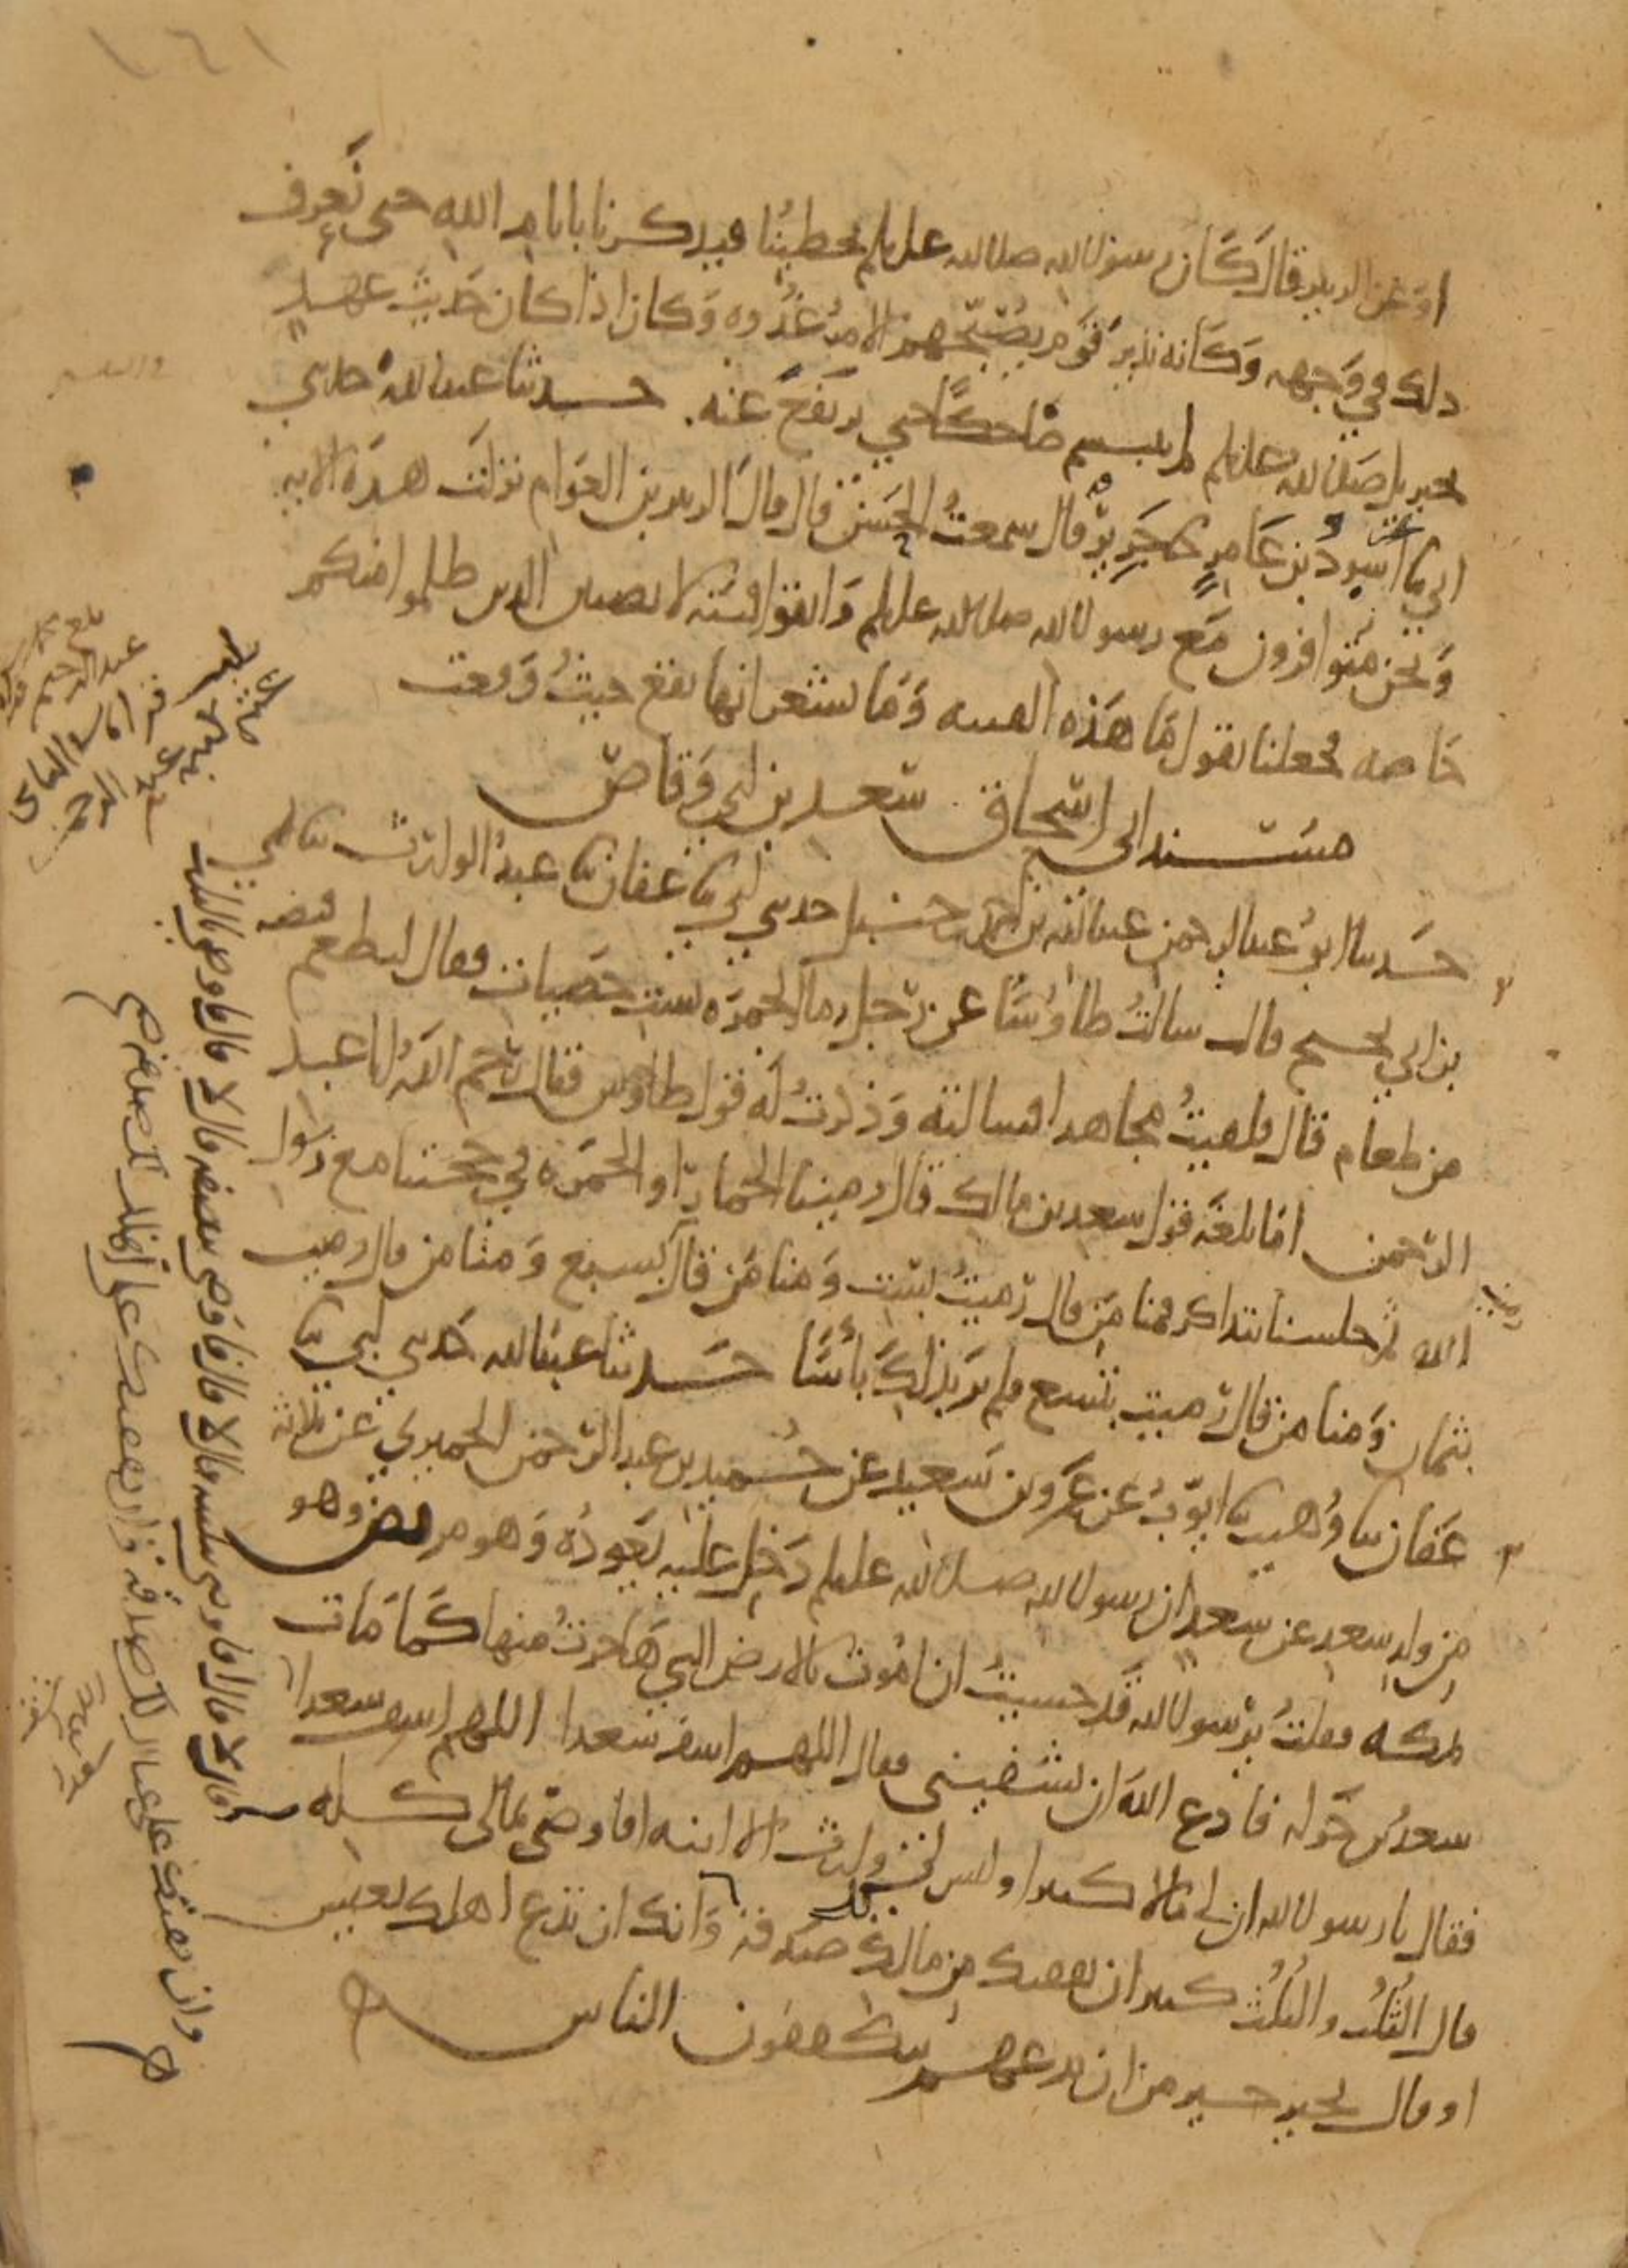 ١٦١
او عن الزبير قال كَان رسول الله صلى الله عليه وسلم يخطبُنا فيذكرنا بايام الله حتى نَعرِف
ذلك في وَجهه وَكَانه نذير قَوم يُصَبّحهم الامرُ غُدْوه وَكان اذا كان حَديثَ عهدٍ
بجبريل صلى الله عليه وسلم لم يتبسم ضاحكًا حتى يرتفعَ عنه. حدثنا عبد الله حدثني
ابي نا اسودُ بن عَامرٍ نا جَرير قال سمعتُ الحَسَن قال قال الزبير بن العوَام نزلَت هذه الايه
وَنحن متوافرون مَع رسول الله صلى الله عليه وسلم وَاتقوا فتنة لا تصيبن الذين ظلموا منكم
خَاصه فجعلنا نقول مَا هَذه الفتنه وَمَا نشعر انها تقع حيثُ وَقعت
مسند ابي اسحاق سَعد بن ابي وَقاصٍ
حَدثنا ابوُ عبد الرحمن عبد الله بن احمد بن حنبل حدثني ابي نا عفان نا عبدُ الوارث نا ابن
بن ابي نجيح قال سالتُ طاوُسًا عن رَجل رمى الجمرَه بستِ حصَيات فقال ليطعم قبضه
من طعام قال فلقيتُ مجاهدا فسالته وَذكرتُ له قول طاوُس فقال رَحم اللهُ ابا عبد
الرَحمن اما بلغَه قول سعد بن مالك قال رمينا الجمار او الجمرَه في حجتنا مع رسول
الله ثم جلسنا نتذاكر فمنا مَن قال رَميتُ بستٍ وَمنا مَن قال بسبع وَمنا من قال رميت
بثمان وَمنا من قال رَميت بتسع فلم يَر بذلكَ باسًا حَدثنا عبد الله حَدثني ابي نا
عَفان نا وُهيب نا ايوّبُ عن عَمرو بن سَعيد عن حُميد بن عبد الرَحمن الحميري عن ثلاثه
من ولد سعد عن سعد ان رسول الله صلى الله عليه وسلم دَخل عليه يَعودُه وَهو مريض وهو
بمكه فقلتُ يرَسول الله قَد خشيتُ ان امُوت بالارض التي هَاجرتُ منها كَما مَات
سعد بن خَوله فادع اللهَ ان يشفيني فقال اللهم اشف سَعدا اللهم اشف سعدا
فقال يا رسول الله ان لي مالا كثيرا وليس لي وارث الا ابنه افاوصي بمالي كله
قال الثُلث والثلُث كثير ان نفقتك من مالك لك صدَقة وَانك ان تدع اهلك بعيش
او قال بخير خير من ان تدعهم يتكففون الناس
قال لا قال افاوصي بثلثيه قال لا قال افاوصي بنصفه قال لا قال افاوصي بالثلث
وان نفقتك على عيالك لك صدقة وان نفقتك على اهلك لك صدقه صح